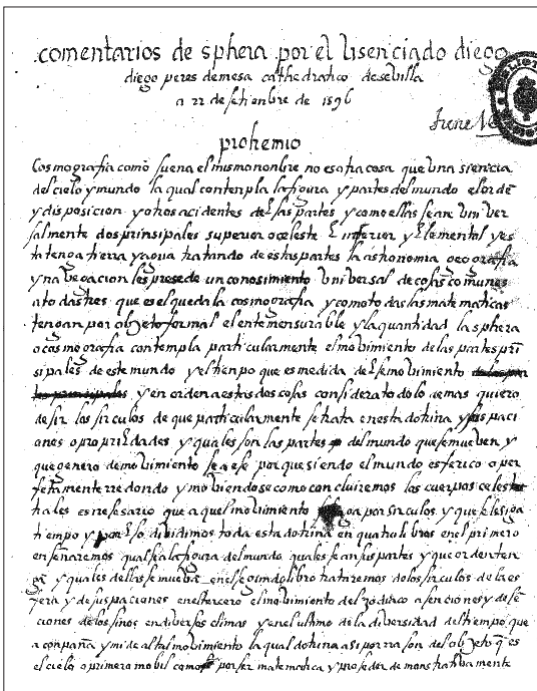 comentarios de sphera por el lisenciado diego
diego peres de mesa cathedratico de sevilla
a 22 de setienbre de 1596
prohemio
Cosmografia como suena el mismo nonbre no es otra cosa que una siencia
del cielo y mundo la qual contenpla la figura y partes del mundo el orde
y disposicion y otros acidentes de las partes y como ellas sean univer
salmente dos prinsipales superior o celeste e inferior y elemental y es
ta tenga tierra y agua tratando de estas partes la astronomia geografia
y navegacion les presede un conosimiento universal de cosas comunes
a todas tres que es el que da la cosmografia y como todas las matematicas
tengan por objeto formal el ente mensurable y la quantidad la sphera
o cosmografia contenpla particularmente el movimiento de las partes pri
sipales de este mundo y el tienpo que es medida de ese movimiento
y en orden a estas dos cosas considera todo lo demas quiero
desir los sirculos de que particularmente se trata en esta dotrina y sus paci
ones o propriedades y quales son las partes del mundo que se mueven y
que genero de movimiento sea ese porque siendo el mundo esferico o per
fetamente redondo y moviendose como concluiremos los cuerpos celes
tiales es nesesario que aquel movimiento se haga por sirculos y que se le siga
tiempo y por eso dividimos toda esta dotrina en quatro libros en el primero
enseñaremos qual sea la figura del mundo quales sean sus partes y que orden ten
gan y quales dellas se muevan en el segundo libro trataremos de los sirculos de la es
fera y de sus paciones en el tercero el movimiento del zodiaco asenciones y dese
ciones de los sinos en diversos climas y en el ultimo de la diversidad del tienpo que
aconpaña y mide al tal movimiento la qual dotrina asi por rason del objeto que es
el cielo o primero mobil como por ser matematica y proseder demonstrativamente